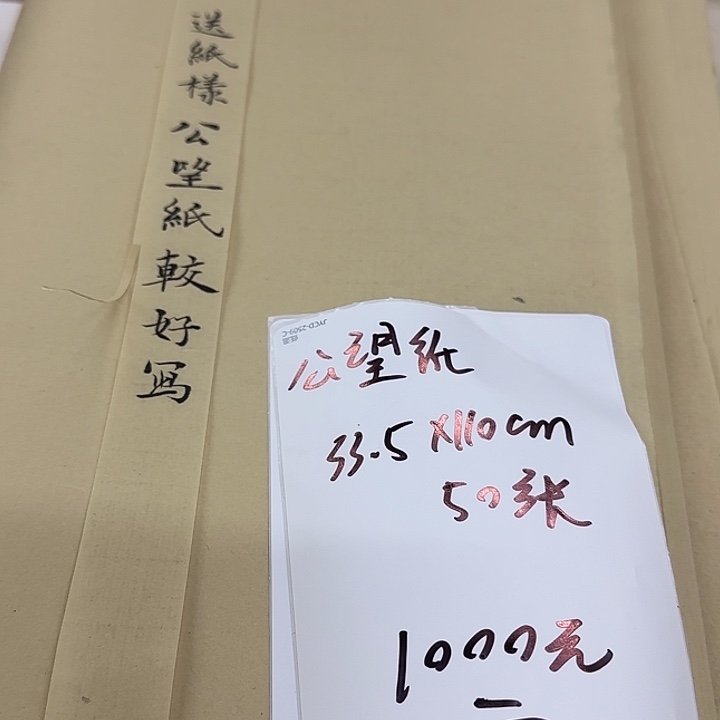 送紙樣公望紙較好寫
JYCD-2509-C
公望紙
33.5X110cm
50张
1000元